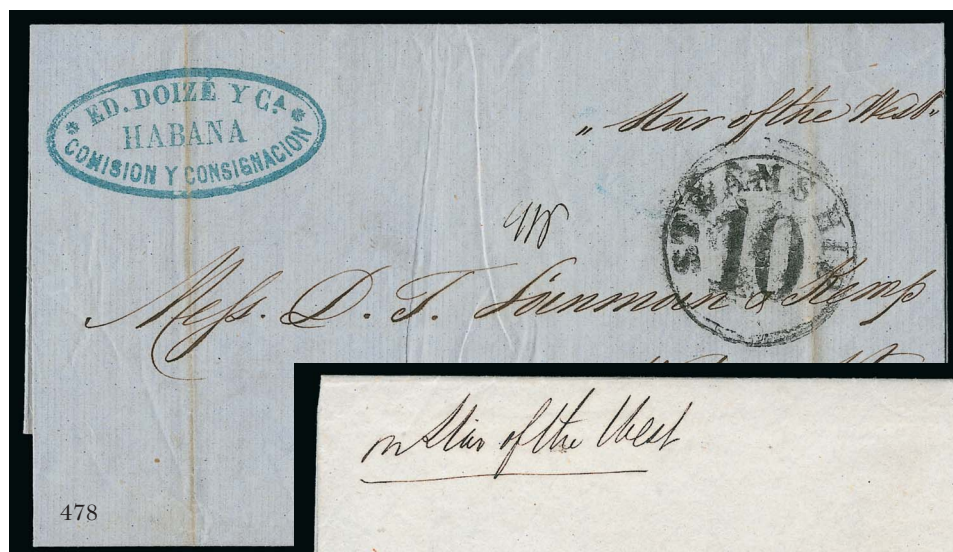 * ED. DOIZÉ Y CA. *
HABANA
COMISION Y CONSIGNACION
"Star of the West"
STEAMSHIP
10
Mess. D. T. Lanman & Kemp
on Star of the West
478